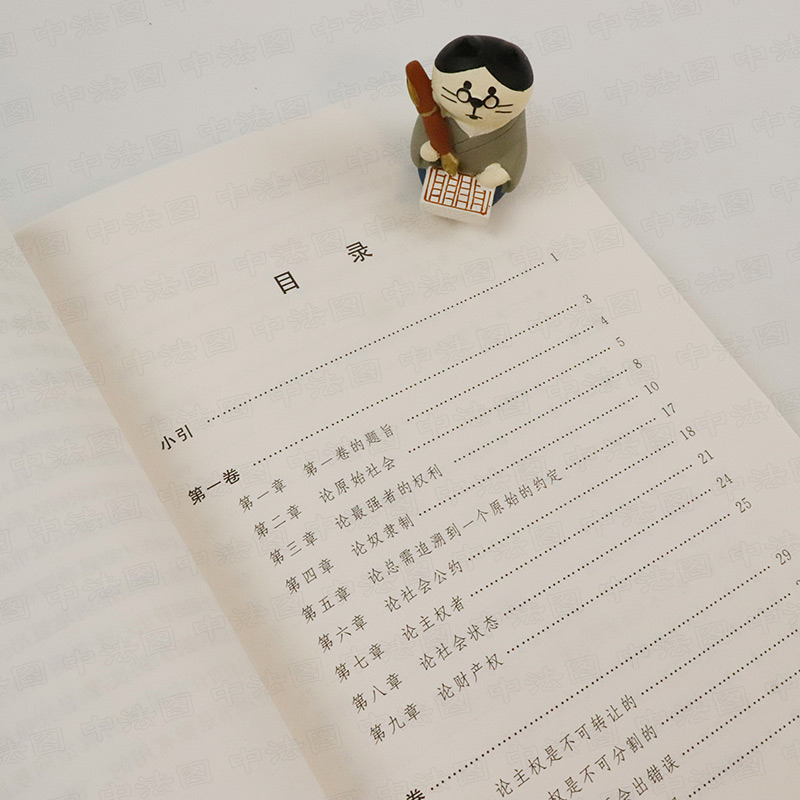 目 录
小引 …… 1
第一卷 …… 3
第一章 第一卷的题旨 …… 4
第二章 论原始社会 …… 5
第三章 论最强者的权利 …… 8
第四章 论奴隶制 …… 10
第五章 论总需追溯到一个原始的约定 …… 17
第六章 论社会公约 …… 18
第七章 论主权者 …… 21
第八章 论社会状态 …… 24
第九章 论财产权 …… 25
卷 …… 29
论主权是不可转让的
权是不可分割的
会出错误
中法图